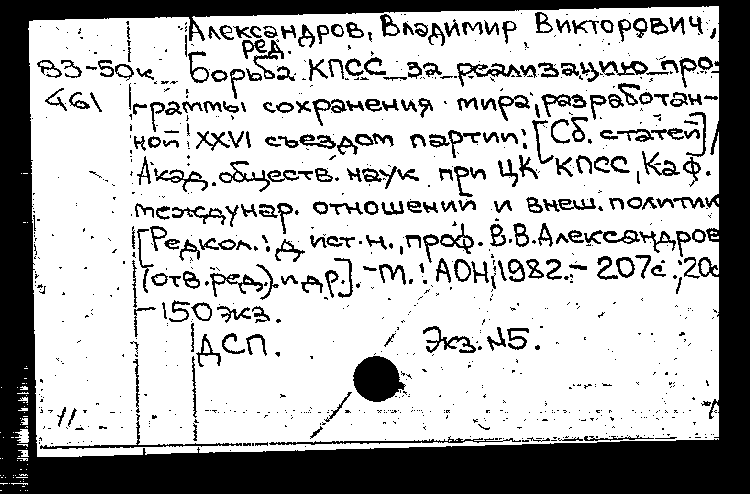 Александров, Владимир Викторович,
ред.
83-50к Борьба КПСС за реализацию про-
461 граммы сохранения мира, разработан-
ной XXVI съездом партии: [Сб. статей] /
Акад. обществ. наук при ЦК КПСС, Каф.
междунар. отношений и внеш. политик
[Редкол.: д. ист. н., проф. В.В.Александров
(отв.ред.) и др.]. - М.: АОН, 1982. - 207с.; 20с
- 150 экз.
ДСП. Экз. №5.
11